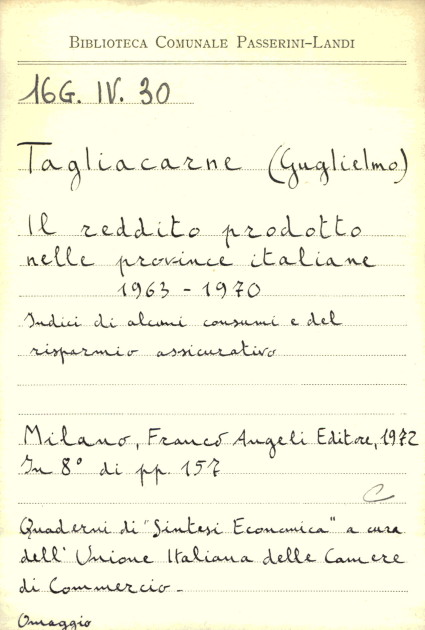 BIBLIOTECA COMUNALE PASSERINI-LANDI
16G. IV. 30
Tagliacarne (Guglielmo)
Il reddito prodotto
nelle province italiane
1963 - 1970
Indici di alcuni consumi e del
risparmio assicurativo
Milano, Franco Angeli Editore, 1972
In 8° di pp. 157
C
Quaderni di "Sintesi Economica" a cura
dell'Unione Italiana delle Camere
di Commercio.-
Omaggio